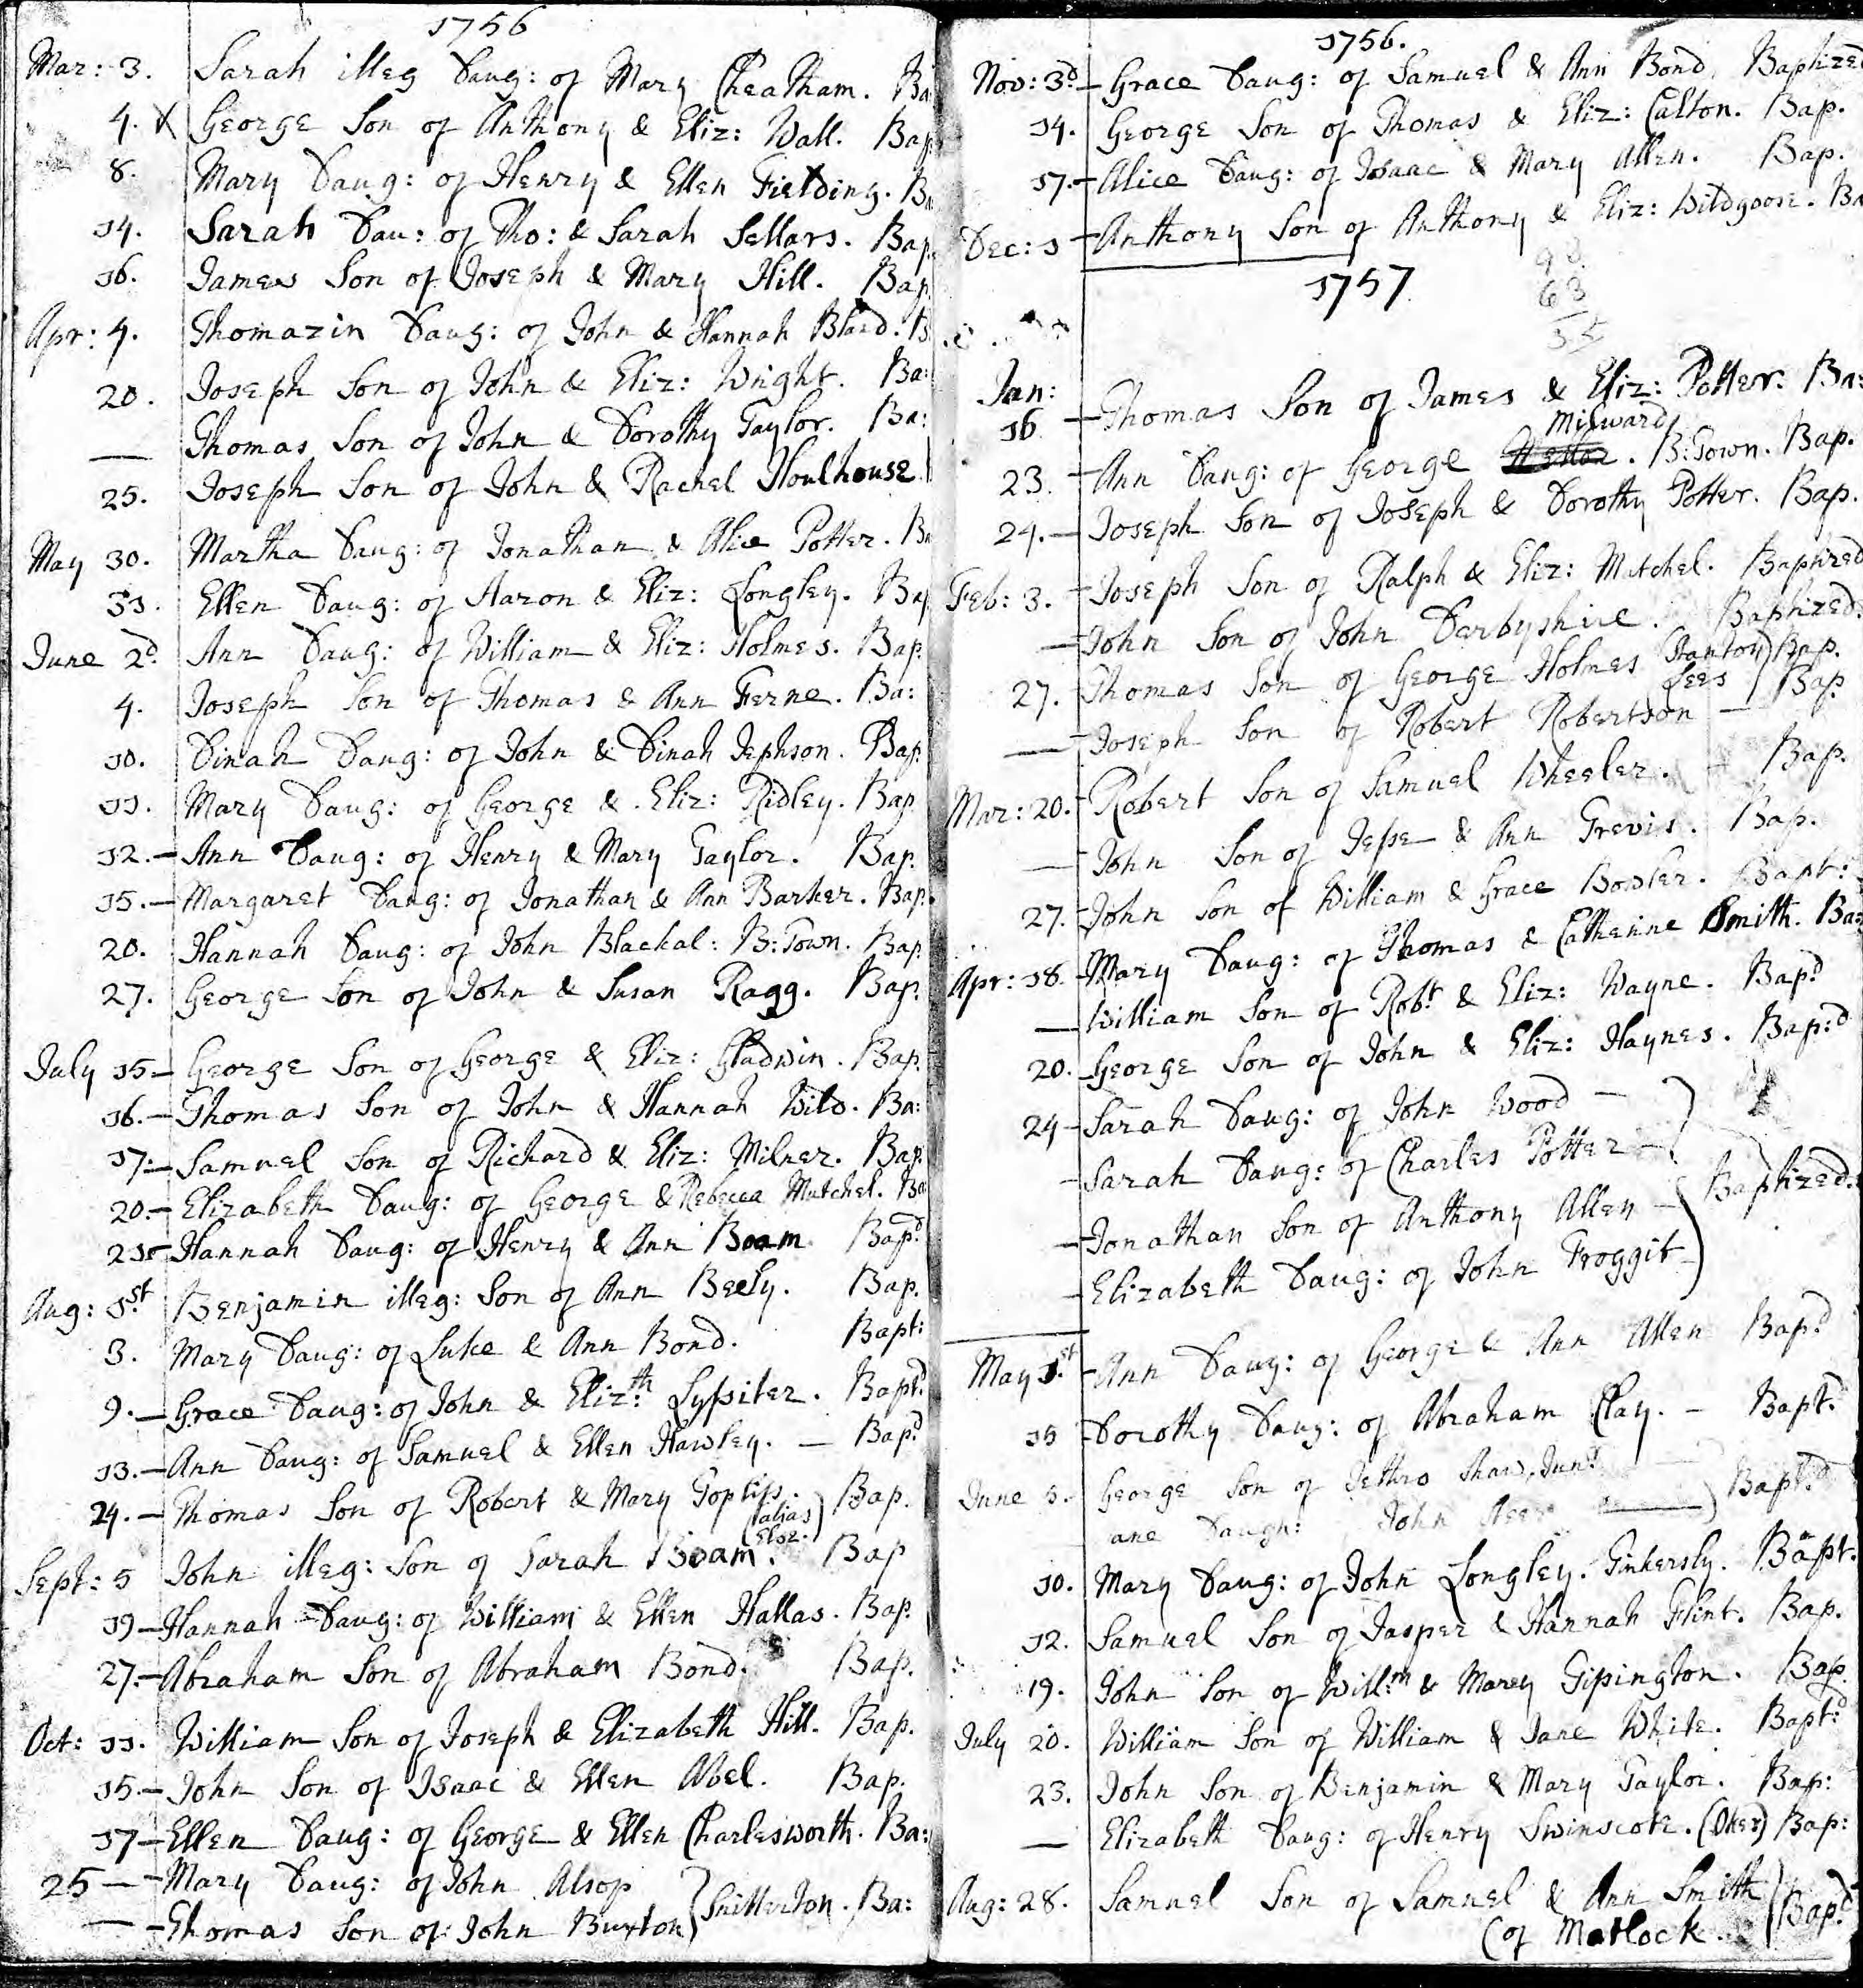 1756
Mar: 3. Sarah illeg Daug: of Mary Cheatham. Ba:
4. X George Son of Anthony & Eliz: Wall. Bap
8. Mary Daug: of Henry & Ellen Fielding. Ba
14. Sarah Dau: of Tho: & Sarah Sellars. Bap.
16. James Son of Joseph & Mary Hill. Bap
Apr: 4. Thomazin Daug: of John & Hannah Bland. B
20. Joseph Son of John & Eliz: Wright. Ba:
— Thomas Son of John & Dorothy Taylor. Ba:
25. Joseph Son of John & Rachel Houlhouse
May 30. Martha Daug: of Jonathan & Alice Potter. Ba
31. Ellen Daug: of Aaron & Eliz: Longley. Bap
June 2d. Ann Daug: of William & Eliz: Holmes. Bap.
4. Joseph Son of Thomas & Ann Ferne. Ba:
10. Dinah Daug: of John & Dinah Jephson. Bap.
11. Mary Daug: of George & Eliz: Ridley. Bap
12. — Ann Daug: of Henry & Mary Taylor. Bap.
15. — Margaret Daug: of Jonathan & Ann Barker. Bap.
20. Hannah Daug: of John Blackal: B: Town. Bap.
27. George Son of John & Susan Ragg. Bap.
July 15 — George Son of George & Eliz: Gladwin. Bap.
16. — Thomas Son of John & Hannah Wild. Ba:
17: — Samuel Son of Richard & Eliz: Milner. Bap.
20. — Elizabeth Daug: of George & Rebecca Mutchel. Ba
21 — Hannah Daug: of Henry & Ann Boam. Bap.d
Aug: 1st. Benjamin illeg: Son of Ann Beely. Bap.
3. Mary Daug: of Luke & Ann Bond. Bapt:
9. — Grace Daug: of John & Eliz:th Lyssiter. Bapt.d
13. — Ann Daug: of Samuel & Ellen Hawley. — Bap.d
24. — Thomas Son of Robert & Mary Topliss. Bap.
Sept: 5 John illeg: Son of Sarah Boam. (alias Eloz.) Bap
19 — Hannah Daug: of William & Ellen Hallas. Bap.
27. — Abraham Son of Abraham Bond. Bap.
Oct: 11. William Son of Joseph & Elizabeth Hill. Bap.
15. — John Son of Isaac & Ellen Abel. Bap.
17 — Ellen Daug: of George & Ellen Charlesworth. Ba:
25 — Mary Daug: of John Alsop
— Thomas Son of John Buxton } Snitterton. Ba:
1756.
Nov: 3d — Grace Daug: of Samuel & Ann Bond. Baptized
14. George Son of Thomas & Eliz: Calton. Bap.
17. — Alice Daug: of Isaac & Mary Allen. Bap.
Dec: 1 — Anthony Son of Anthony & Eliz: Wildgoose. Ba
1757
98
63
35
Jan:
16 — Thomas Son of James & Eliz: Potter. Ba:
Milward
23. — Ann Daug: of George . B: Town. Bap.
24. — Joseph Son of Joseph & Dorothy Potter. Bap.
Feb: 3. — Joseph Son of Ralph & Eliz: Mutchel. Baptized
— John Son of John Darbyshire. Baptized.
27. — Thomas Son of George Holmes Stanton Lees } Bap.
— Joseph Son of Robert Robertson — Bap
Mar: 20. — Robert Son of Samuel Wheeler. Bap.
— John Son of Jesse & Ann Trevis. Bap.
27. — John Son of William & Grace Bowler. Bapt:
Apr: 18. — Mary Daug: of Thomas & Catherine Smith. Ba:
— William Son of Robt & Eliz: Wayne. Bap.d
20. — George Son of John & Eliz: Haynes. Bap:d
24 — Sarah Daug: of John Wood —
— Sarah Daug: of Charles Potter —
— Jonathan Son of Anthony Allen — } Baptized.
— Elizabeth Daug: of John Froggit
May 1st — Ann Daug: of George & Ann Allen Bap.d
15 — Dorothy Daug: of Abraham Clay. — Bapt.d
June 5. George Son of Jethro Shaw, Junr
ane Daugh: John ) Bapt.d
10. Mary Daug: of John Longley. Tinkersly. Bapt.
12. Samuel Son of Jasper & Hannah Flint. Bap.
19. John Son of Will:m & Marey Tipington. Bap.
July 20. William Son of William & Jane White. Bapt:d
23. John Son of Benjamin & Mary Taylor. Bap:
— Elizabeth Daug: of Henry Swinscote. (Oker) Bap:
Aug: 28. Samuel Son of Samuel & Ann Smith
(of Matlock. } Bap.d